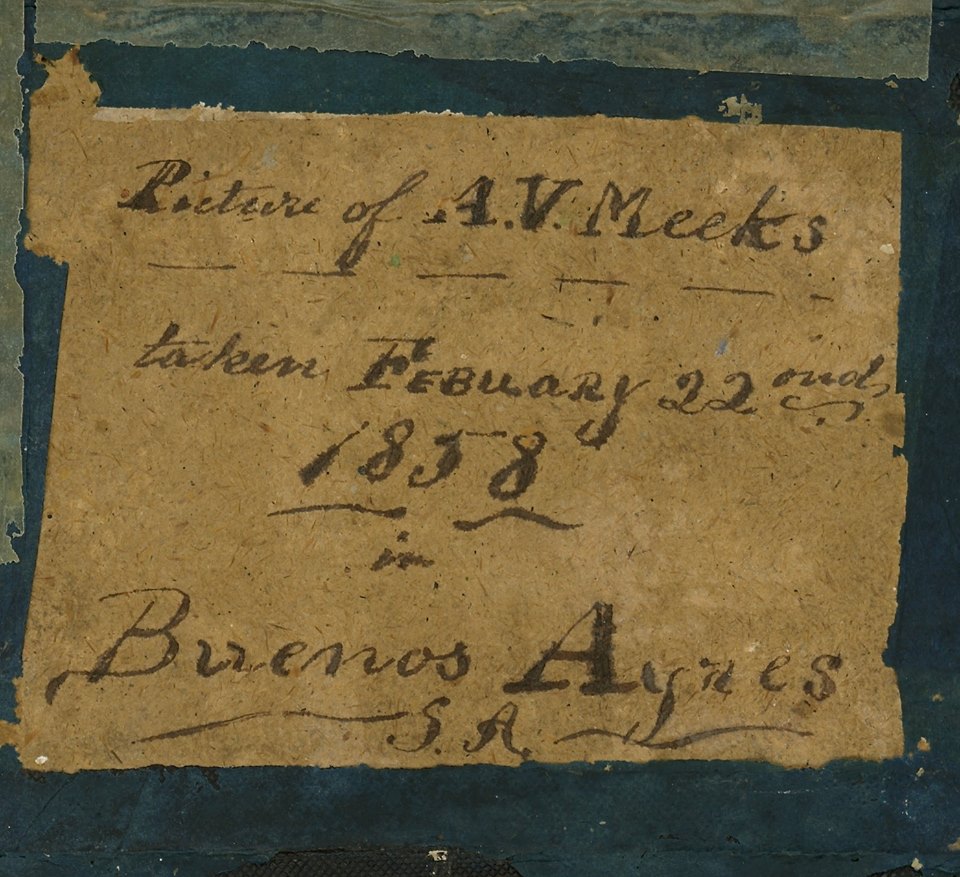 Picture of A.V. Meeks
taken Febuary 22ond
1858
in
Buenos Ayres
S. A.